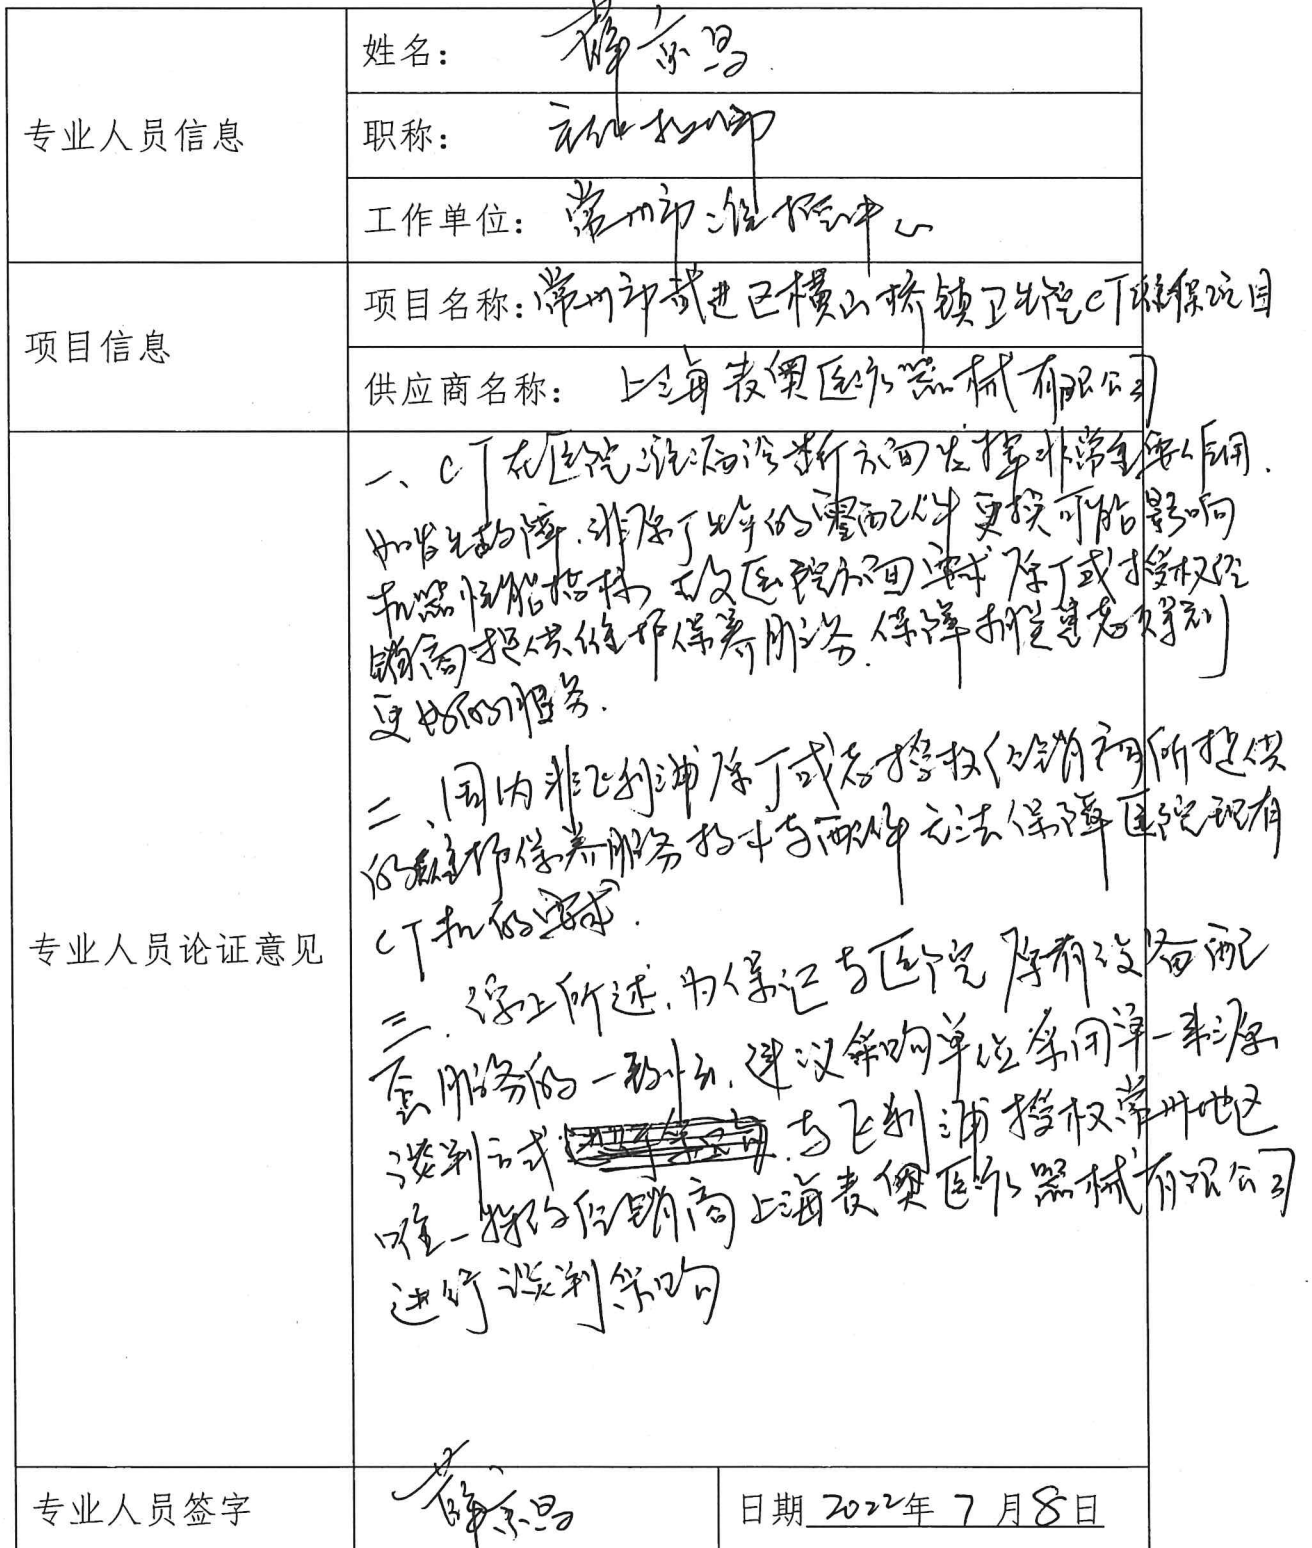 专业人员信息
姓名: 薛京昌
职称: 主任技师
工作单位: 常州市疾控中心
项目信息
项目名称: 常州市武进区横山桥镇卫生院CT维保项目
供应商名称: 上海表奥医疗器械有限公司
专业人员论证意见
一、CT在医院治疗诊断方面发挥非常重要作用.
如发生故障.非原厂生产的零配件更换可能影响
机器性能指标.故医院方面要求原厂或授权经
销商提供维护保养服务.保障我院患者得到
更好的服务.
二、国内非飞利浦原厂或者授权经销商所提供
的维护保养服务技术与配件无法保障医院现有
CT机的要求.
三.综上所述.为保证与医院原有设备配
套服务的一致性.建议采购单位采用单一来源
谈判方式 .与飞利浦授权常州地区
唯一 经销商上海表奥医疗器械有限公司
进行谈判采购
专业人员签字
薛京昌
日期 2022年 7 月8日